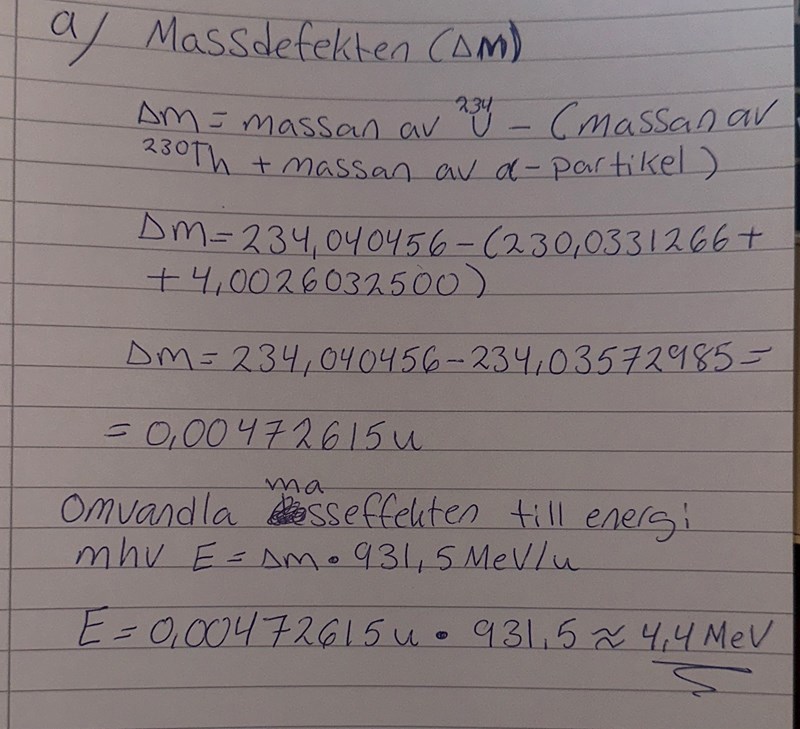 a) Massdefekten (ΔM)
Δm = massan av ²³⁴U – (massan av
230Th + massan av α-partikel)
Δm = 234,040456 – (230,0331266 +
+ 4,0026032500)
Δm = 234,040456 – 234,03572985 =
= 0,00472615u
Omvandla masseffekten till energi
mhv E = Δm • 931,5 MeV/u
E = 0,00472615u • 931,5 ≈ 4,4 MeV